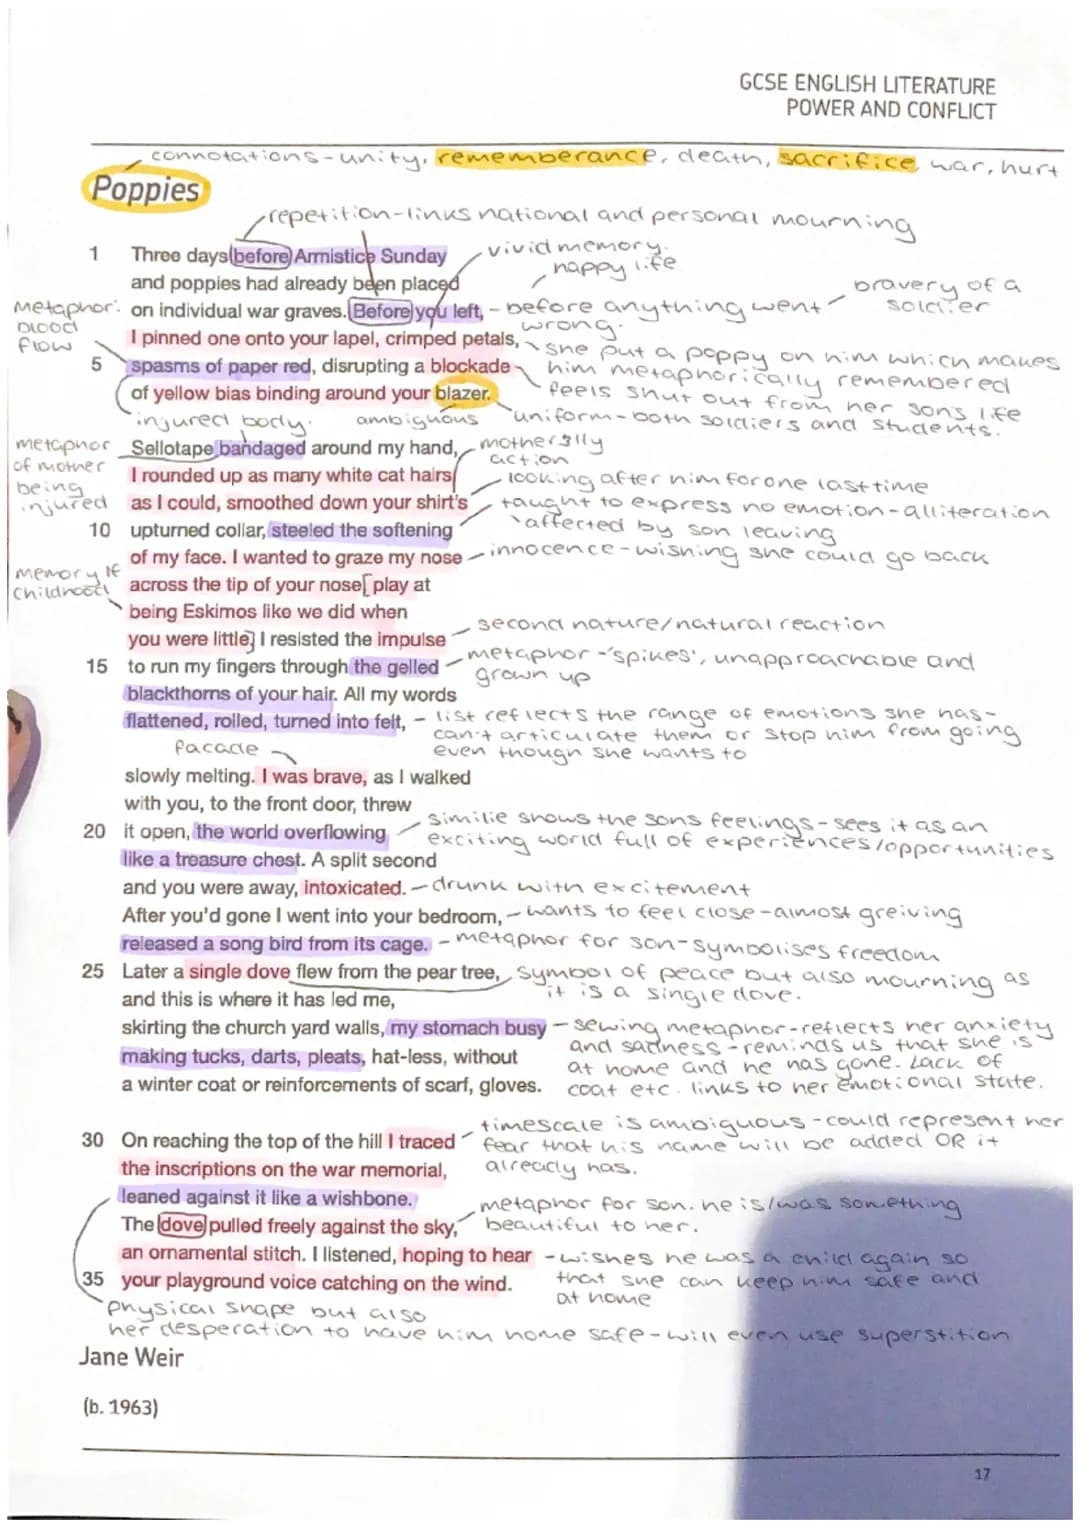 GCSE ENGLISH LITERATURE
POWER AND CONFLICT
connotations - unity, rememberance, death, sacrifice, war, hurt
Poppies
repetition - links national and personal mourning
1 Three days before Armistice Sunday
vivid memory.
happy life
and poppies had already been placed
bravery of a
soldier
metaphor:
blood
flow
on individual war graves. Before you left,
- before anything went
wrong.
I pinned one onto your lapel, crimped petals,
she put a poppy on him which makes
him metaphorically remembered
5 spasms of paper red, disrupting a blockade
feels shut out from her sons life
of yellow bias binding around your blazer.
injured body.
ambiguous
uniform - both soldiers and students.
metaphor
of mother
being
injured
Sellotape bandaged around my hand,
motherslly
action
I rounded up as many white cat hairs
looking after him for one last time
as I could, smoothed down your shirt's
taught to express no emotion - alliteration
10 upturned collar, steeled the softening
affected by son leaving
of my face. I wanted to graze my nose
innocence - wishing she could go back
memory if
childhood
across the tip of your nose, play at
being Eskimos like we did when
you were little. I resisted the impulse
second nature/natural reaction
15 to run my fingers through the gelled
metaphor - 'spikes', unapproachable and
grown up
blackthorns of your hair. All my words
flattened, rolled, turned into felt,
- list reflects the range of emotions she has -
can't articulate them or stop him from going
even though she wants to
facade
slowly melting. I was brave, as I walked
with you, to the front door, threw
20 it open, the world overflowing
similie shows the sons feelings - sees it as an
exciting world full of experiences/opportunities
like a treasure chest. A split second
and you were away, intoxicated.
- drunk with excitement
After you'd gone I went into your bedroom,
- wants to feel close - almost greiving
released a song bird from its cage.
- metaphor for son - symbolises freedom
25 Later a single dove flew from the pear tree,
symbol of peace but also mourning as
it is a single dove.
and this is where it has led me,
skirting the church yard walls, my stomach busy
- sewing metaphor - reflects her anxiety
and sadness - reminds us that she is
making tucks, darts, pleats, hat-less, without
at home and he has gone. Lack of
a winter coat or reinforcements of scarf, gloves.
coat etc. links to her emotional state.
timescale is ambiguous - could represent her
30 On reaching the top of the hill I traced
fear that his name will be added OR it
the inscriptions on the war memorial,
already has.
leaned against it like a wishbone.
metaphor for son. he is/was something
The dove pulled freely against the sky,
beautiful to her.
an ornamental stitch. I listened, hoping to hear
- wishes he was a child again so
35 your playground voice catching on the wind.
that she can keep him safe and
at home
physical shape but also
her desperation to have him home safe - will even use superstition
Jane Weir
(b. 1963)
17